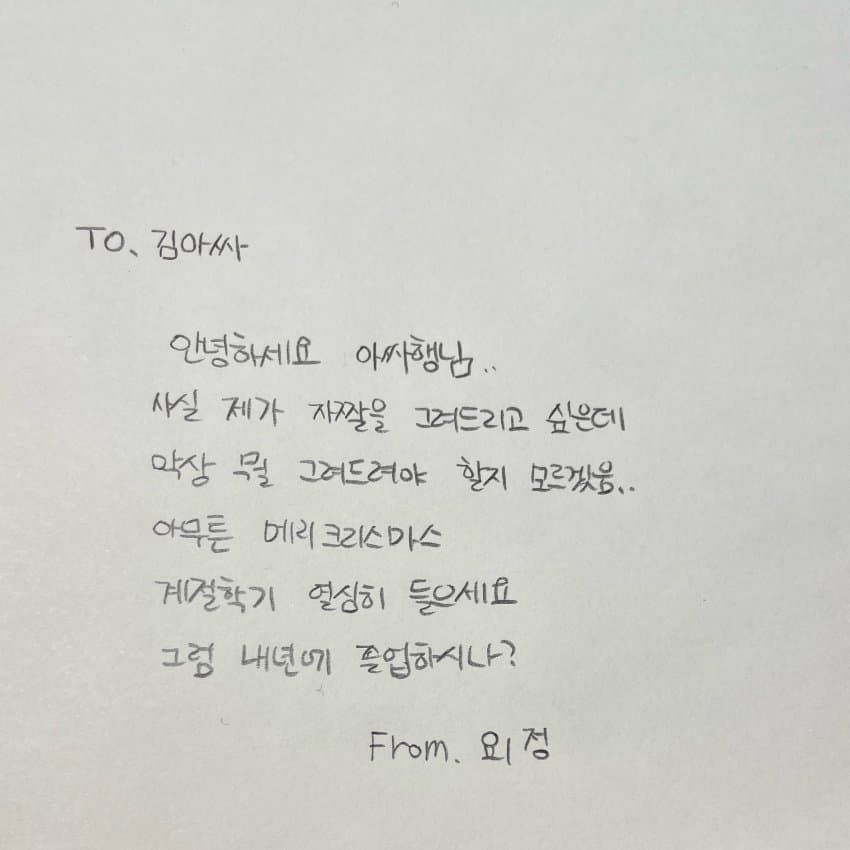 TO. 김아싸
안녕하세요 아싸행님..
사실 제가 자짤을 그려드리고 싶은데
막상 뭘 그려드려야 할지 모르겠움..
아무튼 메리크리스마스
계절학기 열심히 들으세요
그럼 내년에 졸업하시나?
From. 외정